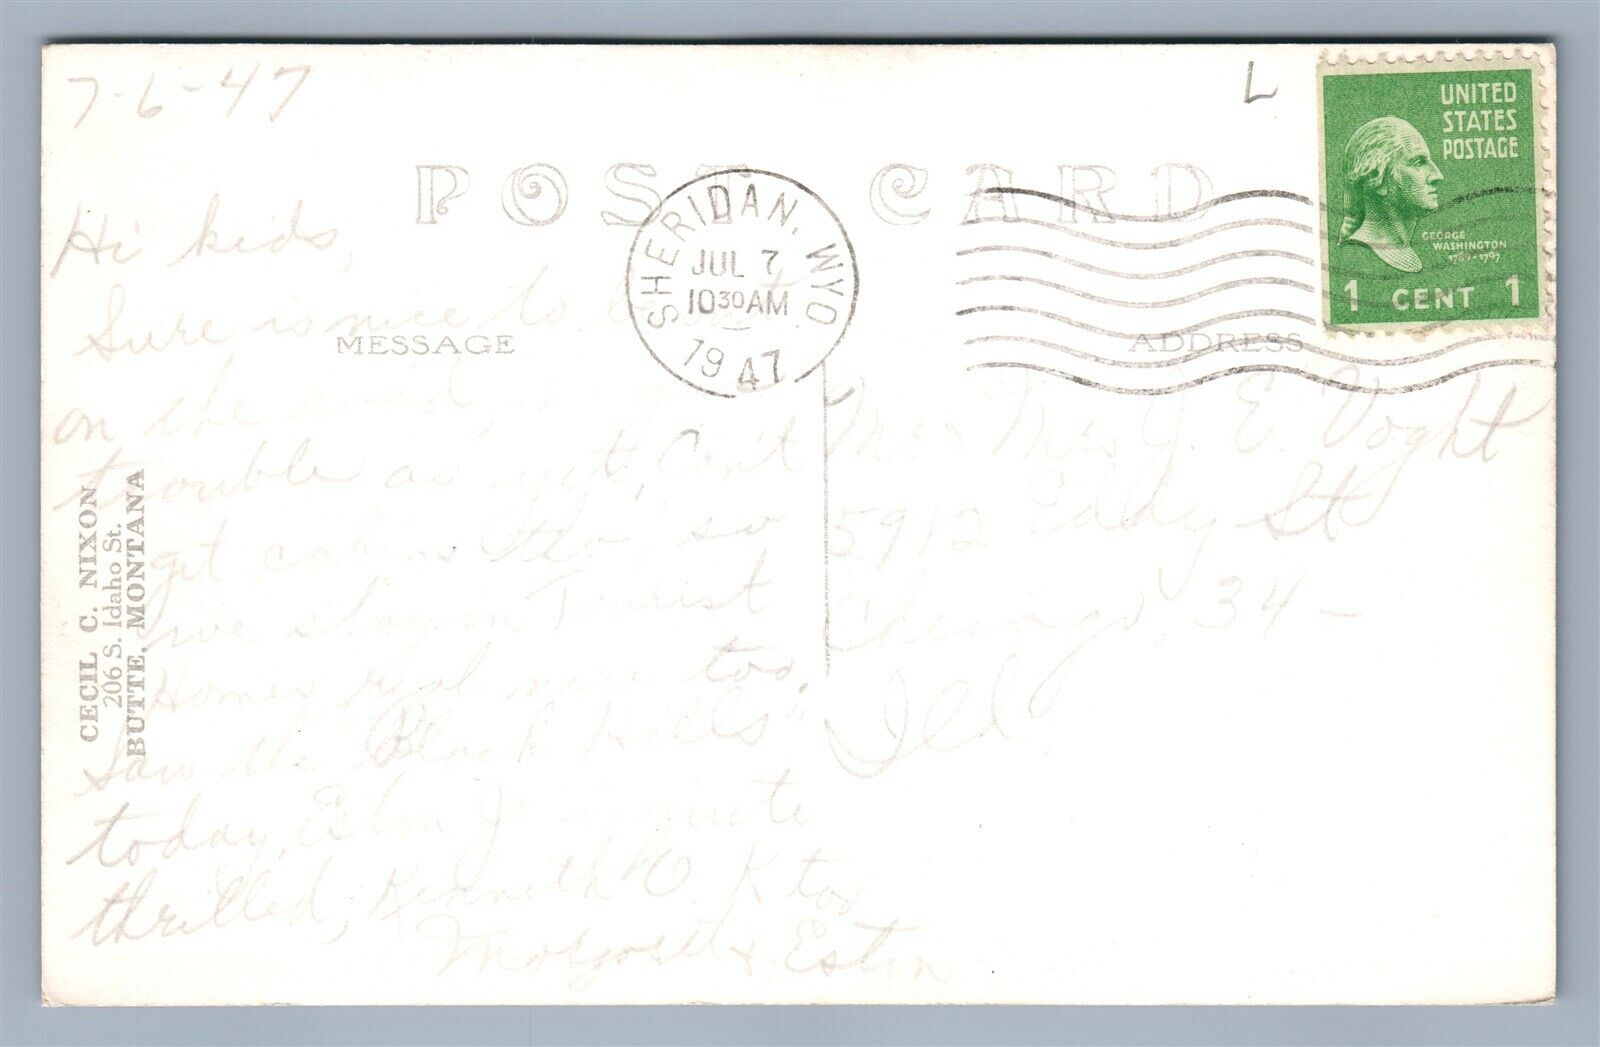 7-6-47
L
UNITED
STATES
POSTAGE
GEORGE
WASHINGTON
1789-1797
1 CENT 1
POST CARD
SHERIDAN, WYO
JUL 7
10 30 AM
1947
MESSAGE
ADDRESS
Hi kids,
Sure is nice to be
on the road, no
trouble as yet, Can't
get cabins tho, so
we stay in Tourist
Homes real nice too,
Saw the Black Hills
today, Eston Jr is quite
thrilled, Kenneth O. K too
& Eston
Mr & Mrs J. E. Voght
5912 Eddy St
Chicago, 34 -
Ill.
CECIL C. NIXON
206 S. Idaho St.
BUTTE, MONTANA